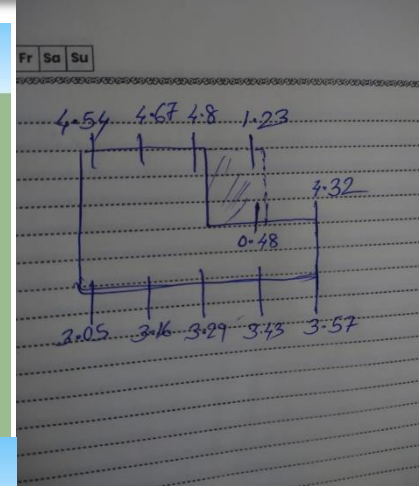 Fr Sa Su
4.54 4.67 4.8 1.23
4.32
0.48
3.05 3.16 3.29 3.43 3.57